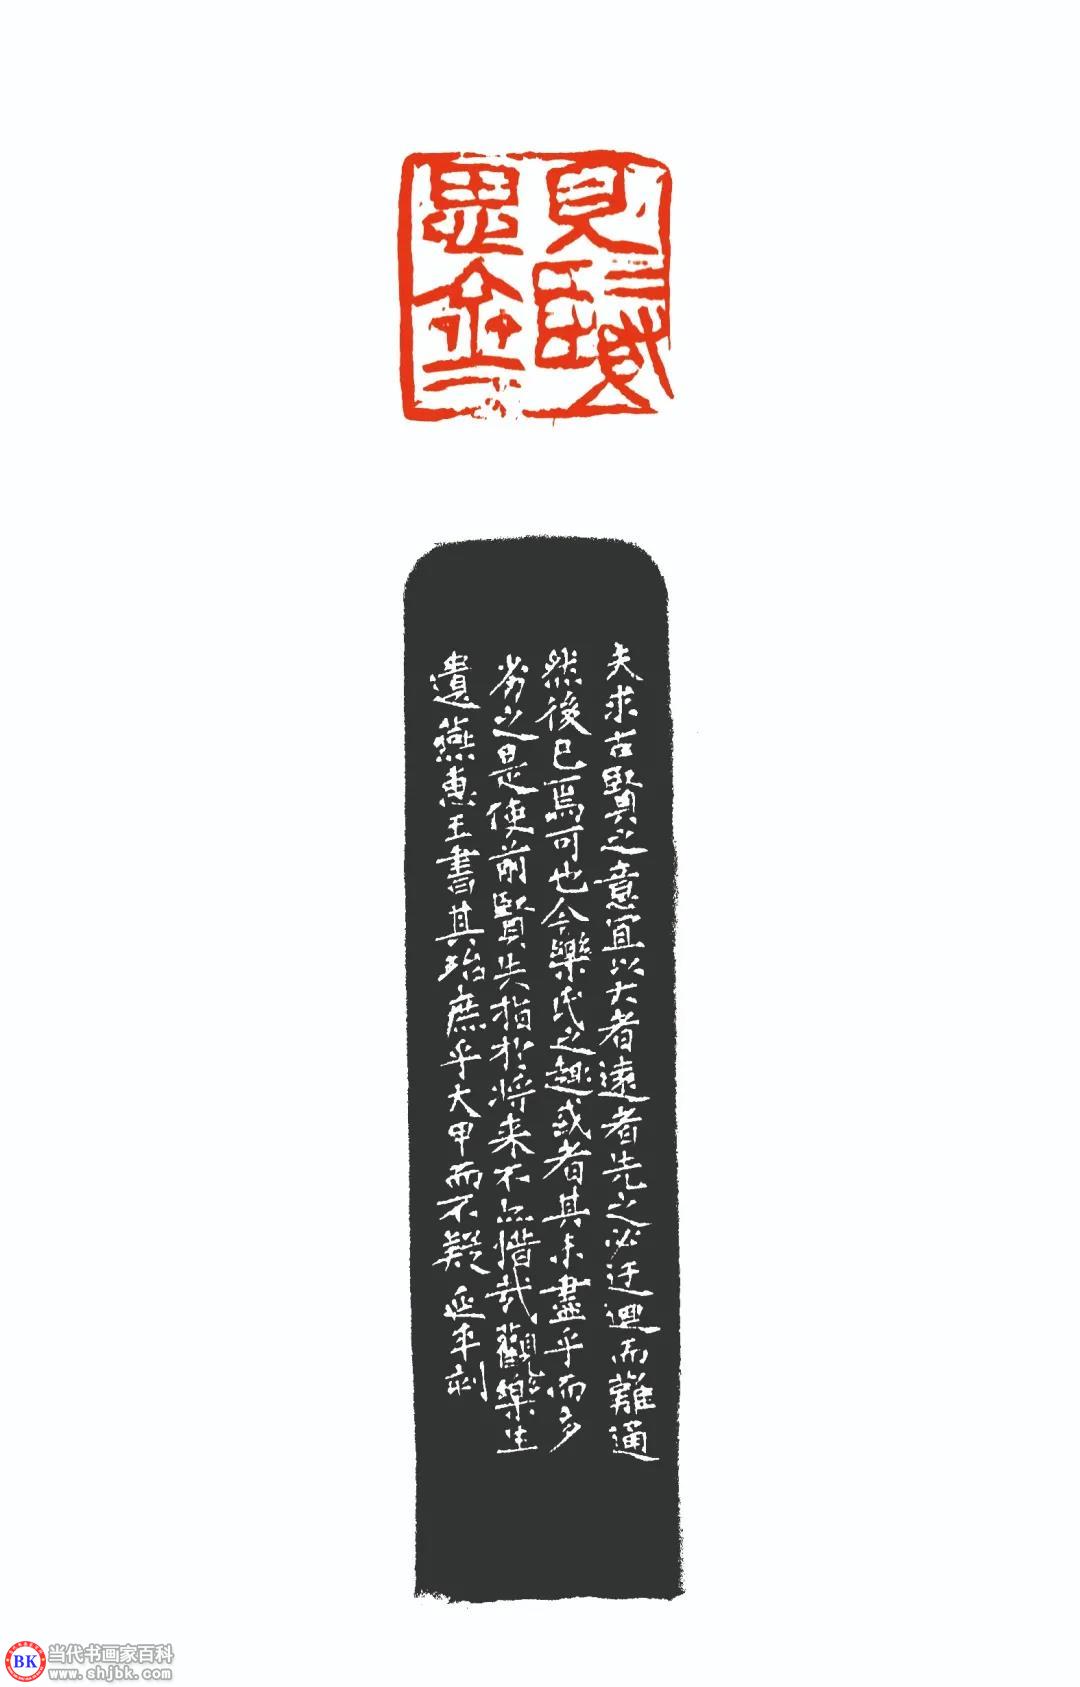 見賢
思齊
夫求古賢之意宜以大者遠者先之必迂迴而難通
然後已焉可也今樂氏之趣或者其未盡乎而多
劣之是使前賢失指於将来不亦惜哉觀樂生
遺燕惠王書其殆庶乎大甲而不疑 延年刻
BK 当代书画家百科
www.shjbk.com